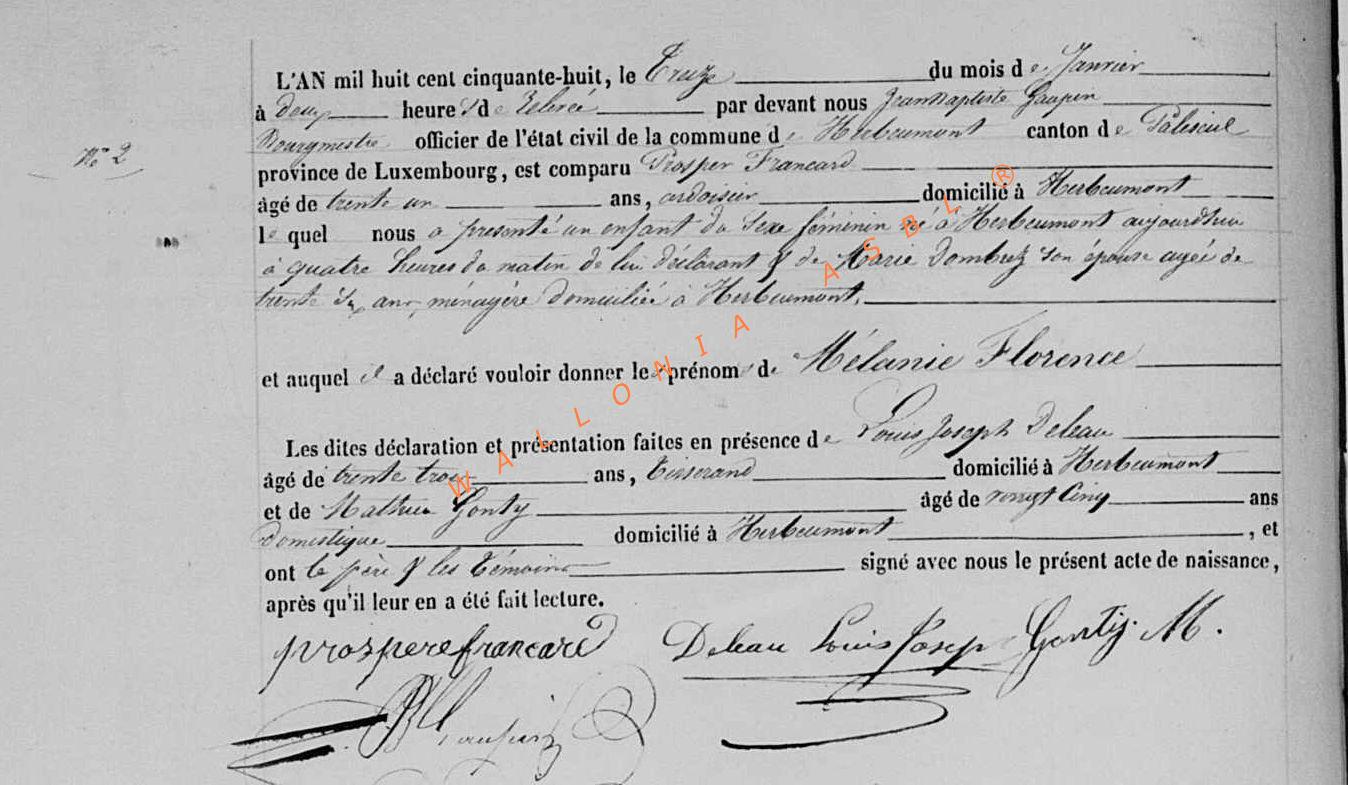 L'AN mil huit cent cinquante-huit, le Treize du mois de Janvier
à deux heures de relevée par devant nous Jean Baptiste Gaupin
Bourgmestre officier de l'état civil de la commune de Herbeumont canton de Paliseul
N° 2
province de Luxembourg, est comparu Prosper Francard
âgé de trente un ans, ardoisier domicilié à Herbeumont
lequel nous a présenté un enfant du sexe féminin né à Herbeumont aujourdhui
à quatre heures du matin de lui déclarant & de Marie Dombret son épouse agée de
trente six ans, ménagère domiciliée à Herbeumont.
et auquel il a déclaré vouloir donner les prénoms de Mélanie Florence
Les dites déclaration et présentation faites en présence de Louis Joseph Deleau
âgé de trente trois ans, tisserand domicilié à Herbeumont
et de Mathieu Gonty âgé de vingt cinq ans
Domestique domicilié à Herbeumont, et
ont le père & les témoins signé avec nous le présent acte de naissance,
après qu'il leur en a été fait lecture.
prospere francard Deleau Louis Josep Gontij. M.
JB Gaupin
WALLONIA ASBL ®